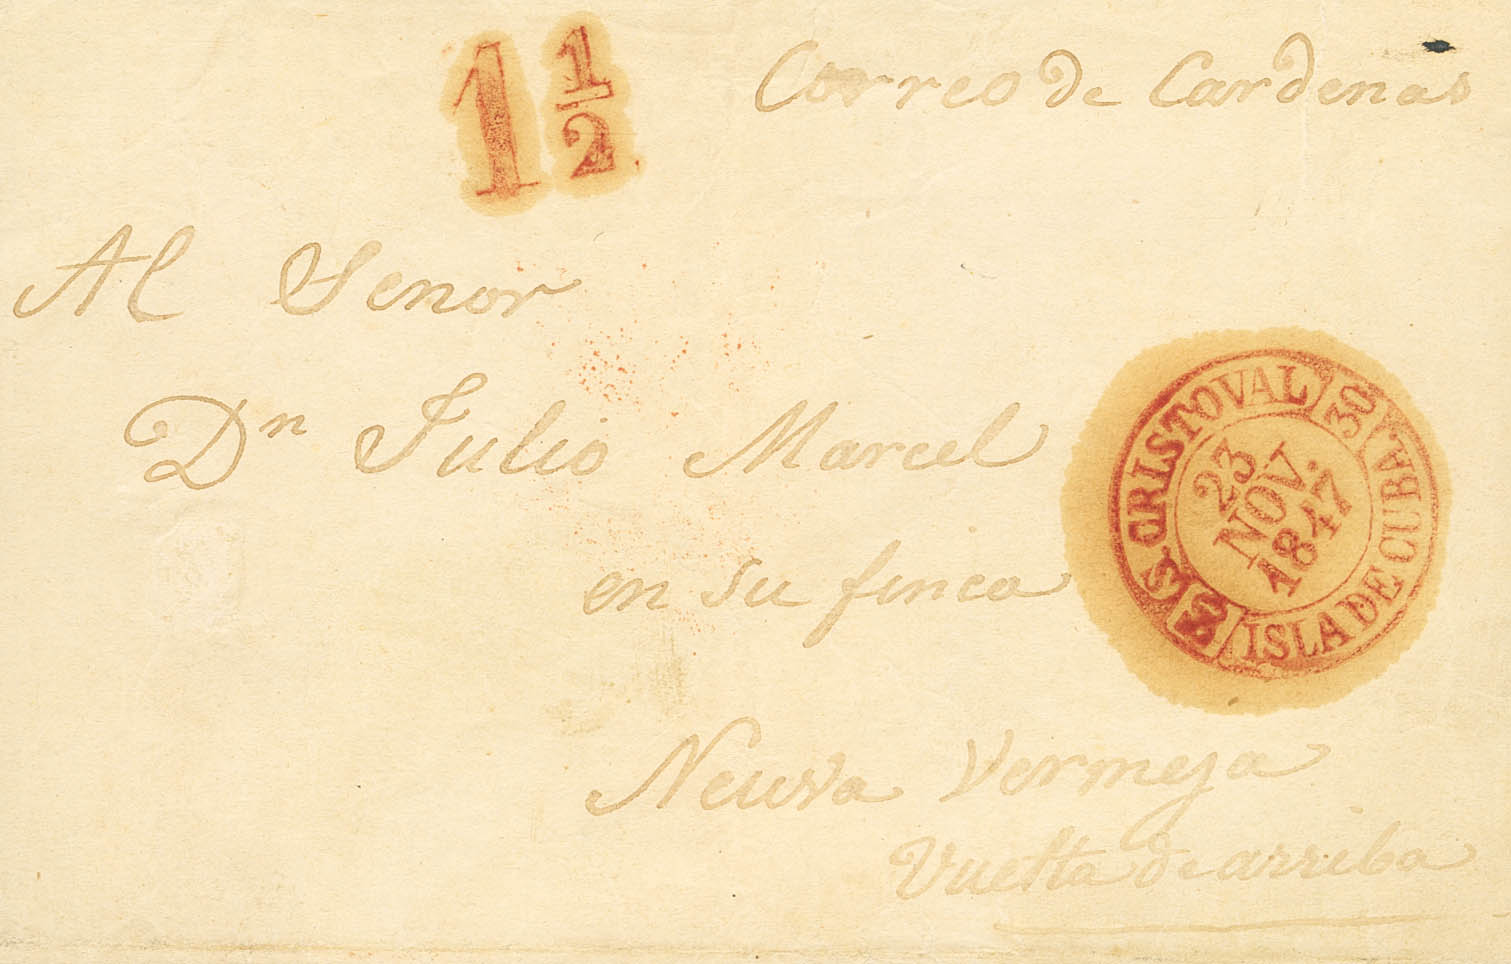 1 1/2
Correo de Cardenas
Al Senor
Dn Julio Marcel
en su finca
S. CRISTOVAL 30
23
NOV.
1847
ISLA DE CUBA
Neuva Vermeja
Vuelta de arriba